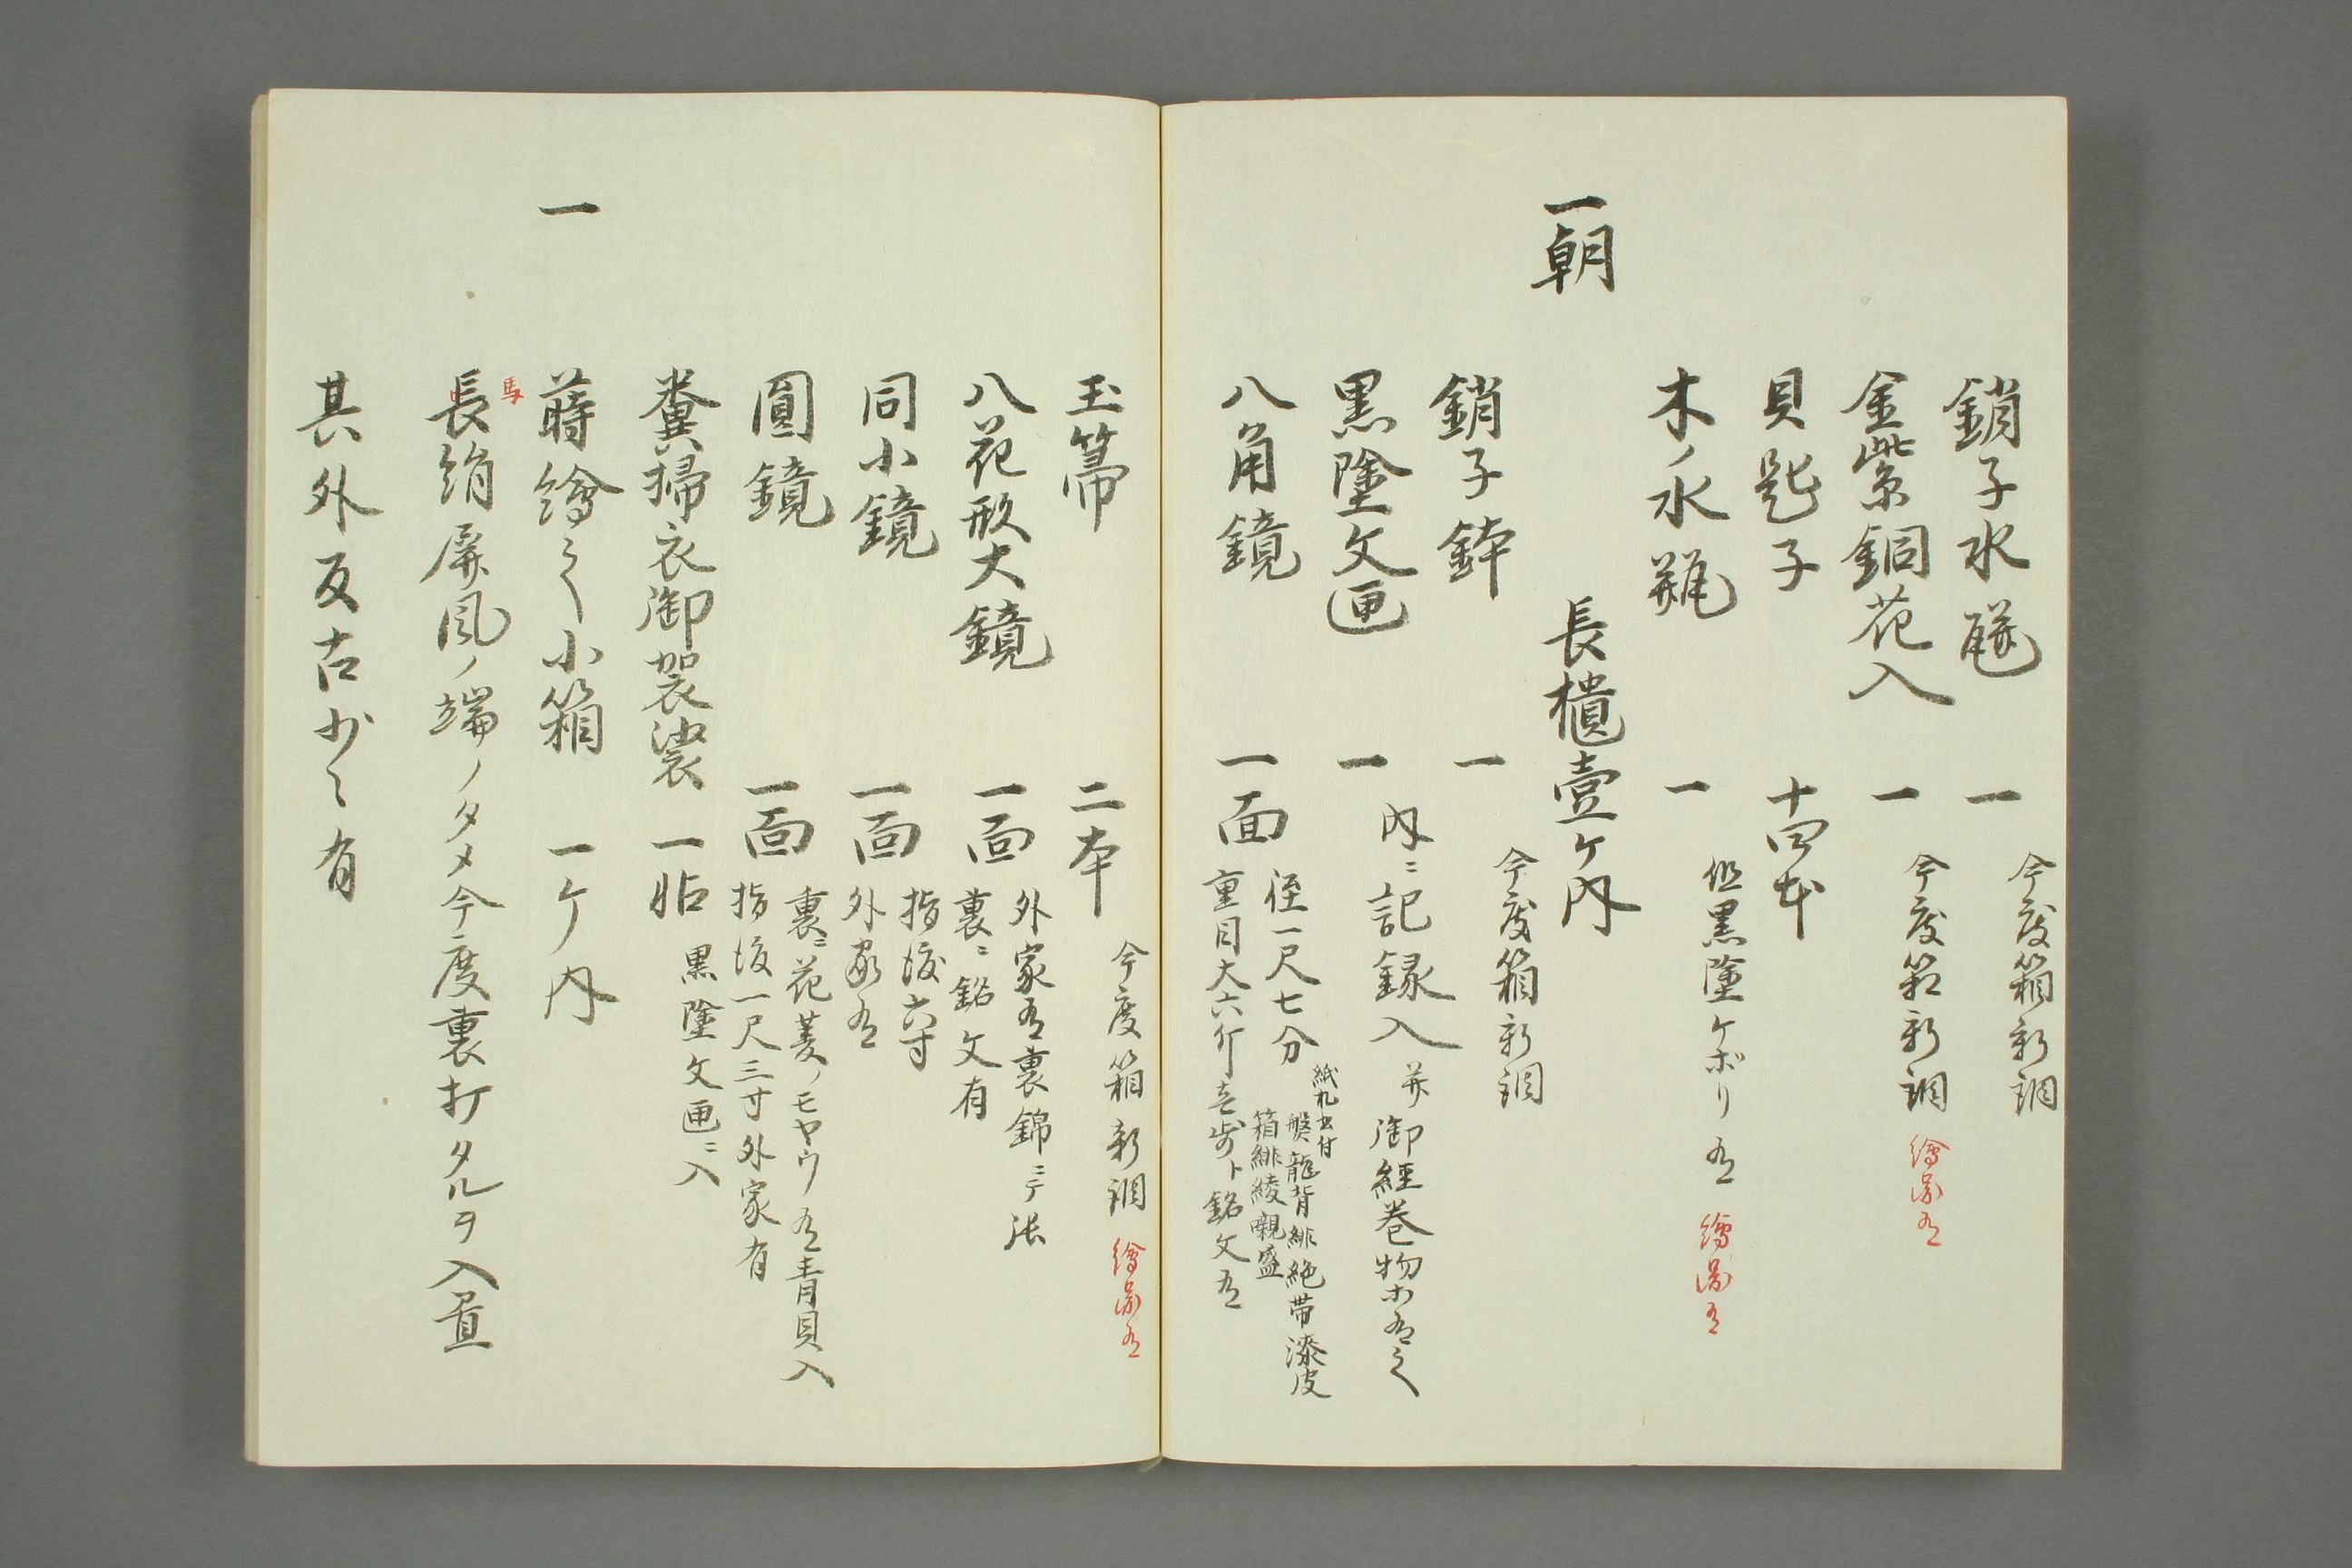 銷子水瓶 一 今度箱新調
金紫銅花入 一 今度箱新調 繪圖有
貝匙子 十四本
木ノ水瓶 一 但黒塗ケボリ有 繪圖有
一朝 長櫃壹ケ内
銷子鉢 一 今度箱新調
黒塗文匣 一 内ニ記録入 并御經巻物亦有之
八角鏡 一面 径一尺七分
重目大六斤壱歩ト銘文有
紙札書付
盤龍背緋絁帯漆皮
箱緋綾嚫盛
玉箒 二本 今度箱新調 繪圖有
八花形大鏡 一面 外家有裏錦ニテ張
裏ニ銘文有
同小鏡 一面 指渡六寸
外家有
圓鏡 一面 裏ニ花菱ノモヤウ有青貝入
指渡一尺三寸外家有
糞掃衣御袈裟 一帖 黒塗文匣ニ入
一 蒔繪之小箱 一ケ内
馬
長絹屏風ノ端ノタメ今度裏打タルヲ入置
其外反古少々有